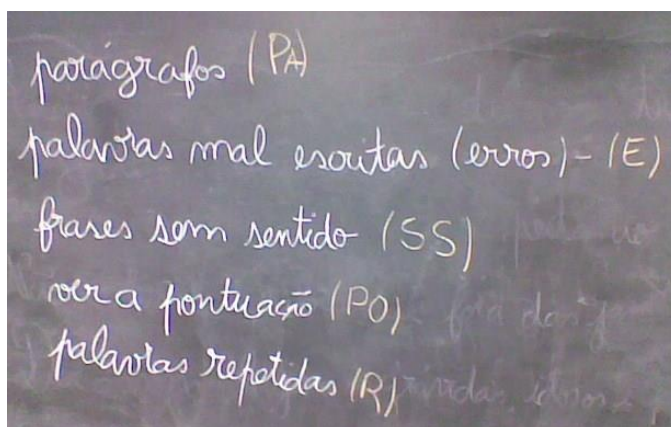 parágrafos (PA)
palavras mal escritas (erros) - (E)
frases sem sentido (SS)
ver a pontuação (PO)
palavras repetidas (R)